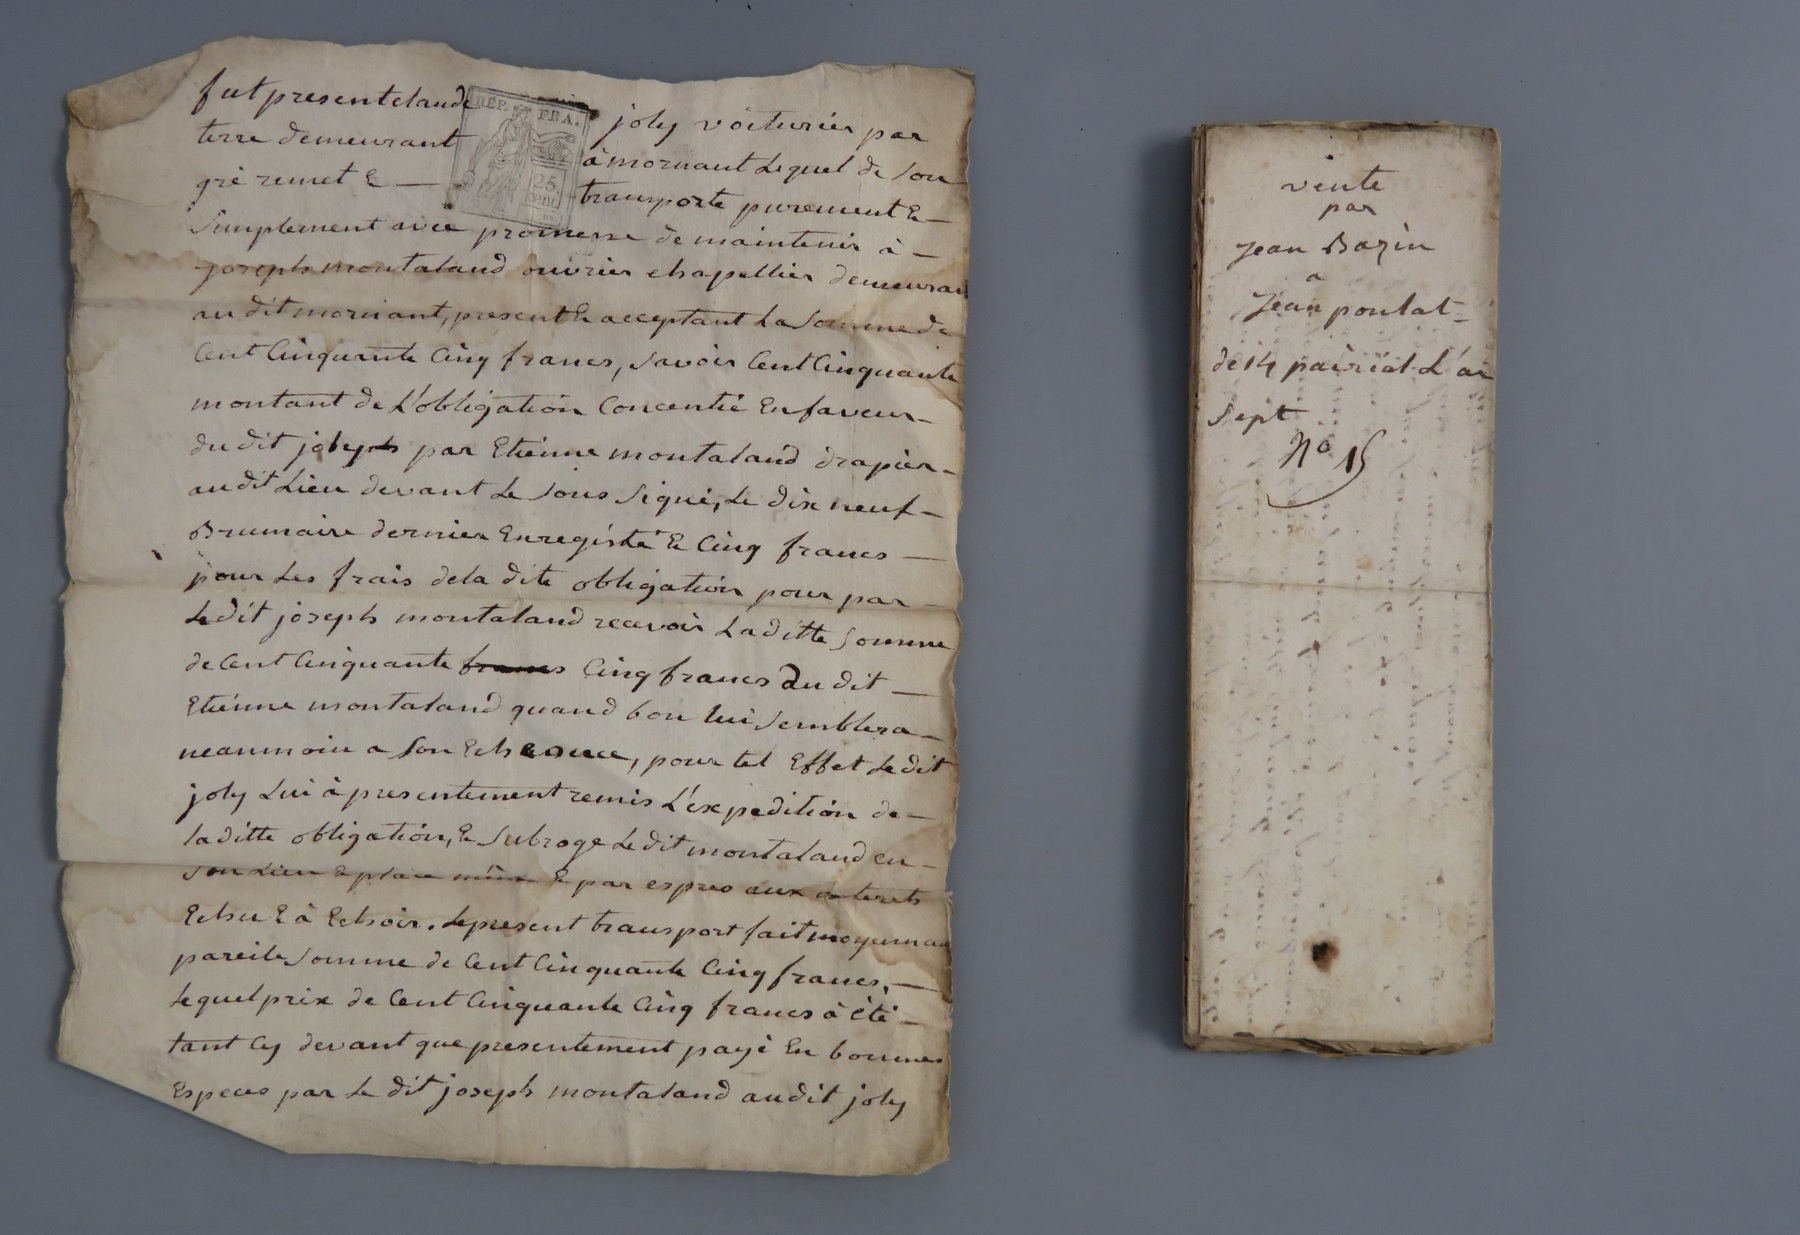 fut present claude joly voiturier par
REP. FRA.
25. cent.
terre demeurant à mornant Lequel de Son
gré remet & — transporte purement & —
Simplement avec promesse de maintenir à —
joseph montaland ouvrier chapellier demeurant
au dit mornant, present & acceptant La Somme de
Cent Cinquante Cinq francs, Savoir Cent Cinquante
montant de L'obligation Concentie En faveur —
du dit joly par Etienne montaland drapier —
au dit Lieu devant Le Sous Signé, Le dix neuf —
Brumaire dernier Enregistré & Cinq francs —
pour Les frais dela dite obligation pour par —
Le dit joseph montaland recevoir La ditte Somme
de Cent Cinquante francs Cinq francs du dit —
Etienne montaland quand bon lui Semblera —
neanmoin a Son Echeance, pour tel Effet Le dit
joly Lui à presentement remis L'expedition de —
la ditte obligation, & Subroge Le dit montaland en —
Son Lieu & place même & par expres aux interets
Echu & à Echoir. Le present transport fait moyennan
pareile Somme de Cent Cinquante Cinq francs, —
Le quel prix de Cent Cinquante Cinq francs à été —
tant Cy devant que presentement payé En bonnes
Especes par Le dit joseph montaland au dit joly
vente
par
Jean Bazin
a
Jean poulat —
de 14 pairial L'an
Sept
N° 15